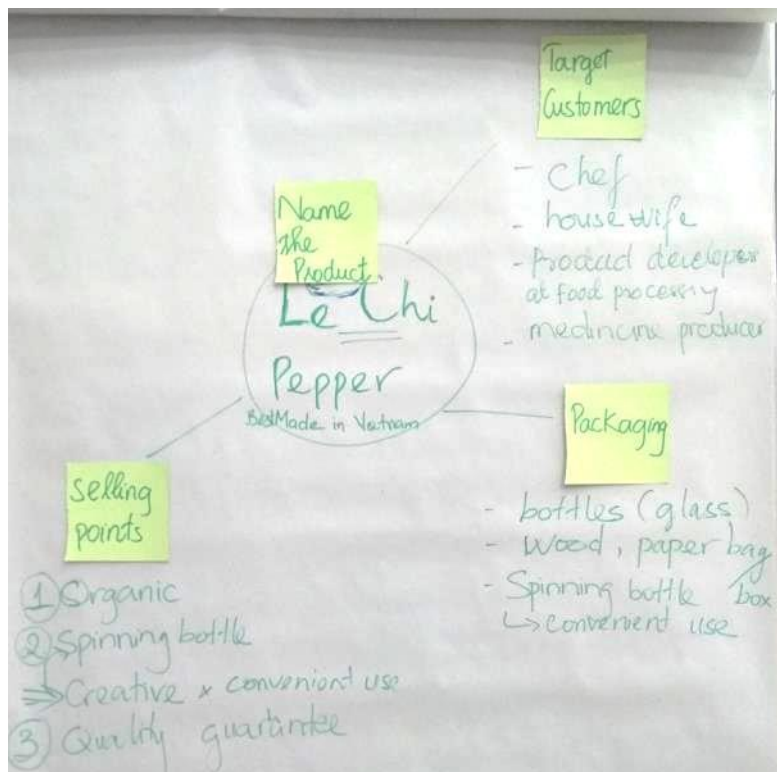 Target
Customers
- Chef
- housewife
- Product developer
at food processing
- medincine producer
Name
the
Product.
Le Chi
Pepper
Best Made in Vietnam
Packaging
- bottles (glass)
- Wood, paper bag
/box
- Spinning bottle
↳ convenient use
Selling
points
① Organic
② Spinning bottle
⇒ Creative & convenient use
③ Quality guarantee